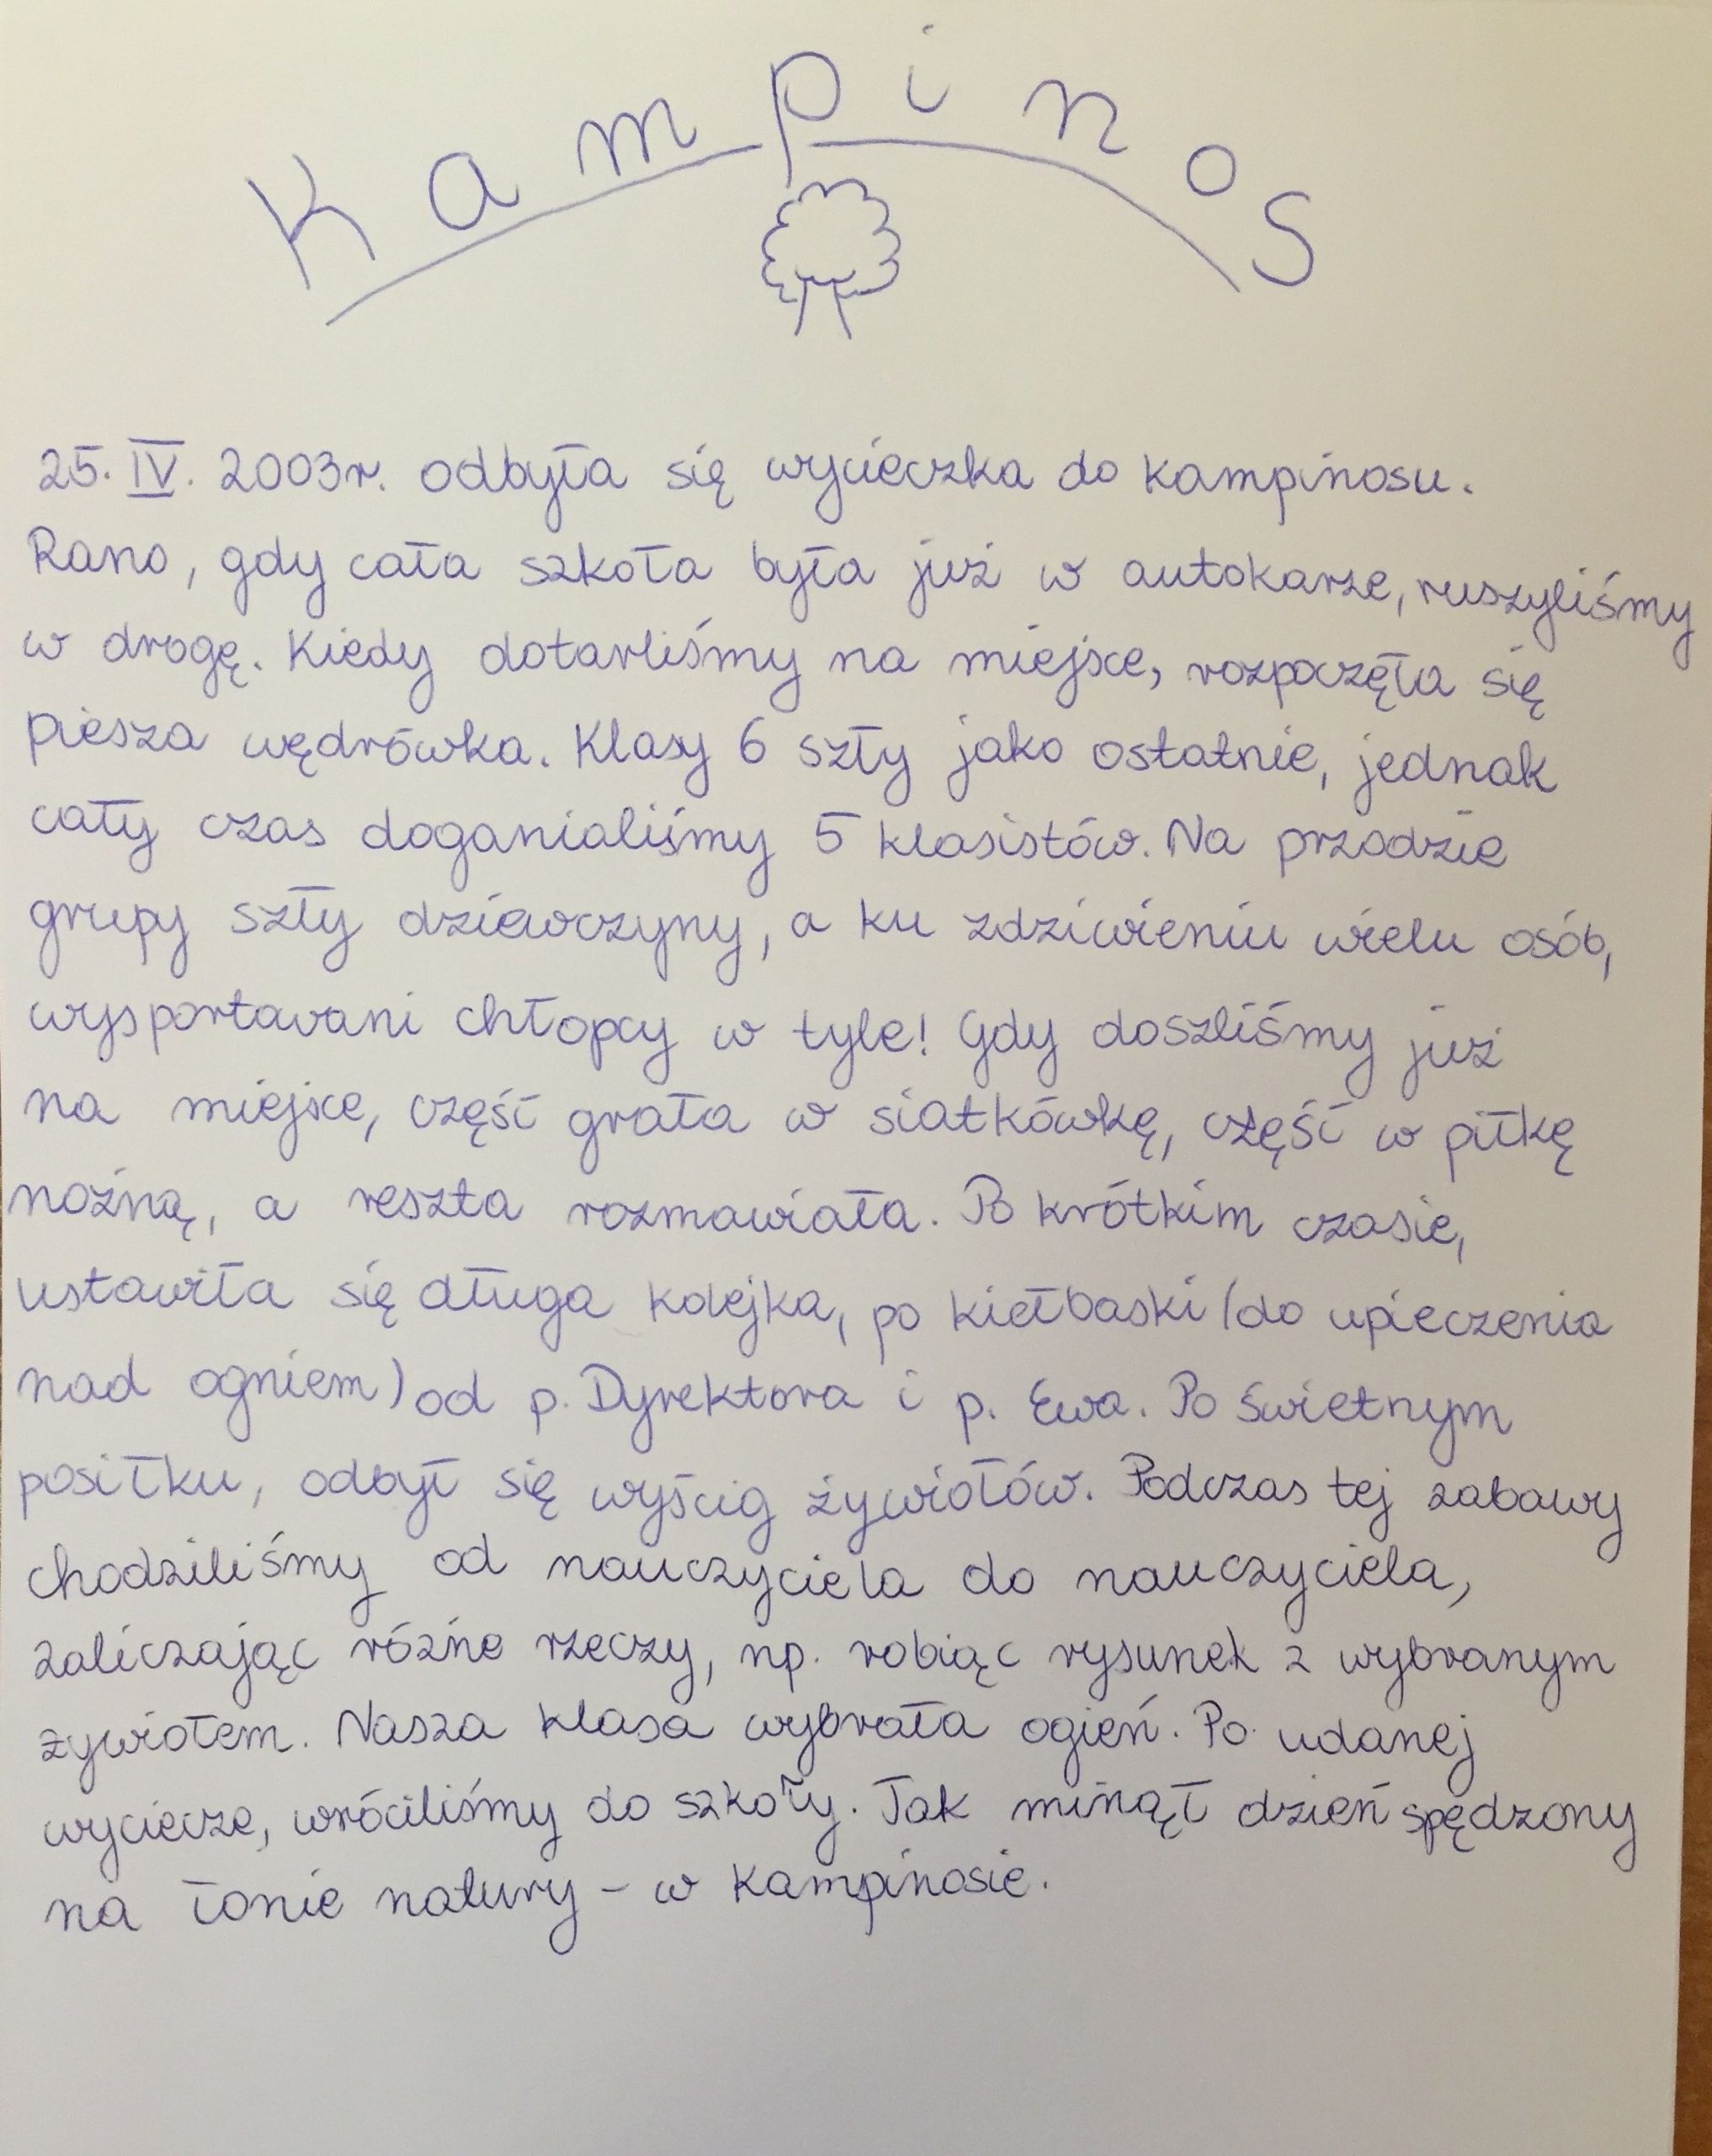 Kampinos
25. IV. 2003r. odbyła się wycieczka do Kampinosu.
Rano, gdy cała szkoła była już w autokarze, ruszyliśmy
w drogę. Kiedy dotarliśmy na miejsce, rozpoczęła się
piesza wędrówka. Klasy 6 szły jako ostatnie, jednak
cały czas doganialiśmy 5 klasistów. Na przodzie
grupy szły dziewczyny, a ku zdziwieniu wielu osób,
wysportowani chłopcy w tyle! Gdy doszliśmy już
na miejsce, część grała w siatkówkę, część w piłkę
nożną, a reszta rozmawiała. Po krótkim czasie,
ustawiła się długa kolejka, po kiełbaski (do upieczenia
nad ogniem) od p. Dyrektora i p. Ewa. Po świetnym
posiłku, odbył się wyścig żywiołów. Podczas tej zabawy
chodziliśmy od nauczyciela do nauczyciela,
zaliczając różne rzeczy, np. robiąc rysunek z wybranym
żywiołem. Nasza klasa wybrała ogień. Po udanej
wyciecze, wróciliśmy do szkoły. Tak minął dzień spędzony
na łonie natury - w Kampinosie.